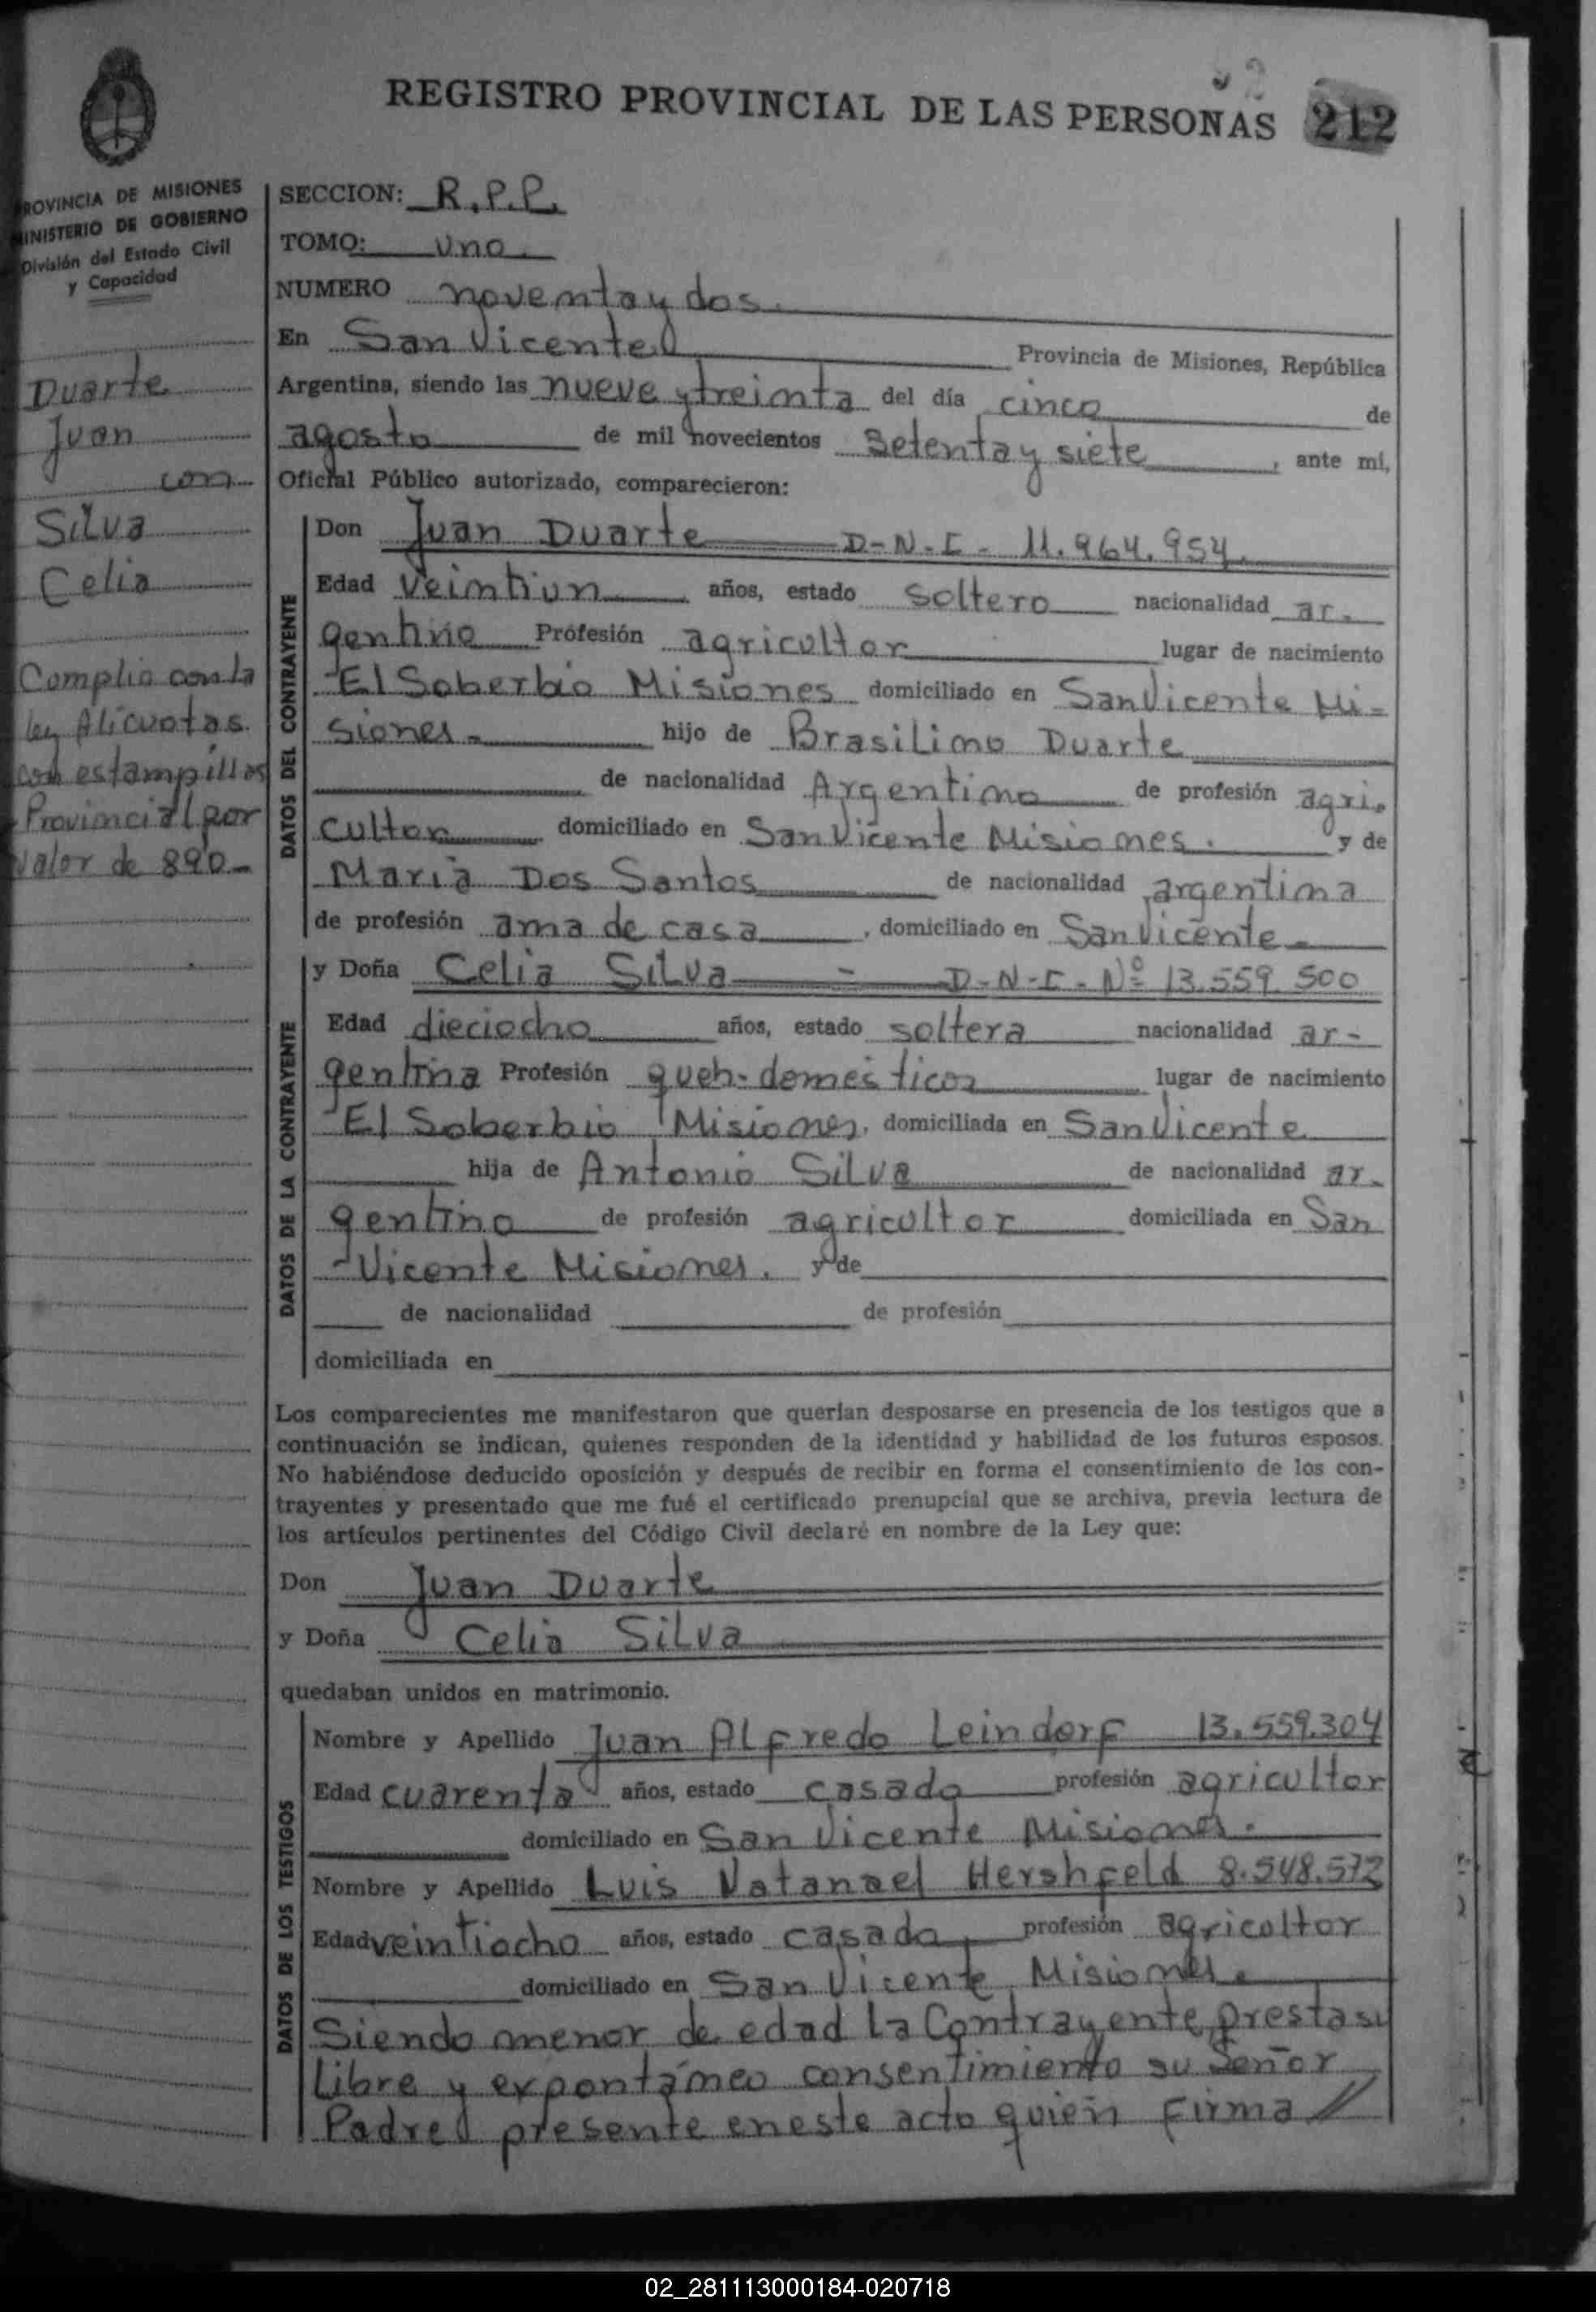 REGISTRO PROVINCIAL DE LAS PERSONAS 212
PROVINCIA DE MISIONES
MINISTERIO DE GOBIERNO
División del Estado Civil
y Capacidad
Duarte
Juan
con
Silva
Celia
Complio con la
ley Alicuotas.
con estampillas
Provincial por
valor de 890-
SECCION: R.P.P.
TOMO: uno
NUMERO noventa y dos.
En San Vicente Provincia de Misiones, República
Argentina, siendo las nueve y treinta del día cinco de
agosto de mil novecientos setenta y siete, ante mí,
Oficial Público autorizado, comparecieron:
DATOS DEL CONTRAYENTE
Don Juan Duarte D-N-I- 11.964.954.
Edad veintiun años, estado soltero nacionalidad ar-
gentino Profesión agricultor lugar de nacimiento
El Soberbio Misiones domiciliado en San Vicente Mi-
siones.- hijo de Brasilino Duarte
de nacionalidad Argentino de profesión agri-
cultor domiciliado en San Vicente Misiones. y de
Maria Dos Santos de nacionalidad argentina
de profesión ama de casa, domiciliado en San Vicente-
DATOS DE LA CONTRAYENTE
y Doña Celia Silva - D-N-I- Nº 13.559.500
Edad dieciocho años, estado soltera nacionalidad ar-
gentina Profesión queh-domésticos lugar de nacimiento
El Soberbio Misiones, domiciliada en San Vicente
hija de Antonio Silva de nacionalidad ar-
gentino de profesión agricultor domiciliada en San
Vicente Misiones. y de
de nacionalidad de profesión
domiciliada en
Los comparecientes me manifestaron que querían desposarse en presencia de los testigos que a
continuación se indican, quienes responden de la identidad y habilidad de los futuros esposos.
No habiéndose deducido oposición y después de recibir en forma el consentimiento de los con-
trayentes y presentado que me fué el certificado prenupcial que se archiva, previa lectura de
los artículos pertinentes del Código Civil declaré en nombre de la Ley que:
Don Juan Duarte
y Doña Celia Silva
quedaban unidos en matrimonio.
DATOS DE LOS TESTIGOS
Nombre y Apellido Juan Alfredo Leindorf 13.559.304
Edad cuarenta años, estado casado profesión agricultor
domiciliado en San Vicente Misiones.
Nombre y Apellido Luis Natanael Hershfeld 8.548.572
Edad veintiocho años, estado casado, profesión agricultor
domiciliado en San Vicente Misiones.
Siendo menor de edad la Contrayente, presta su
libre y expontáneo consentimiento su Señor
Padre presente en este acto quien firma //
02_281113000184-020718